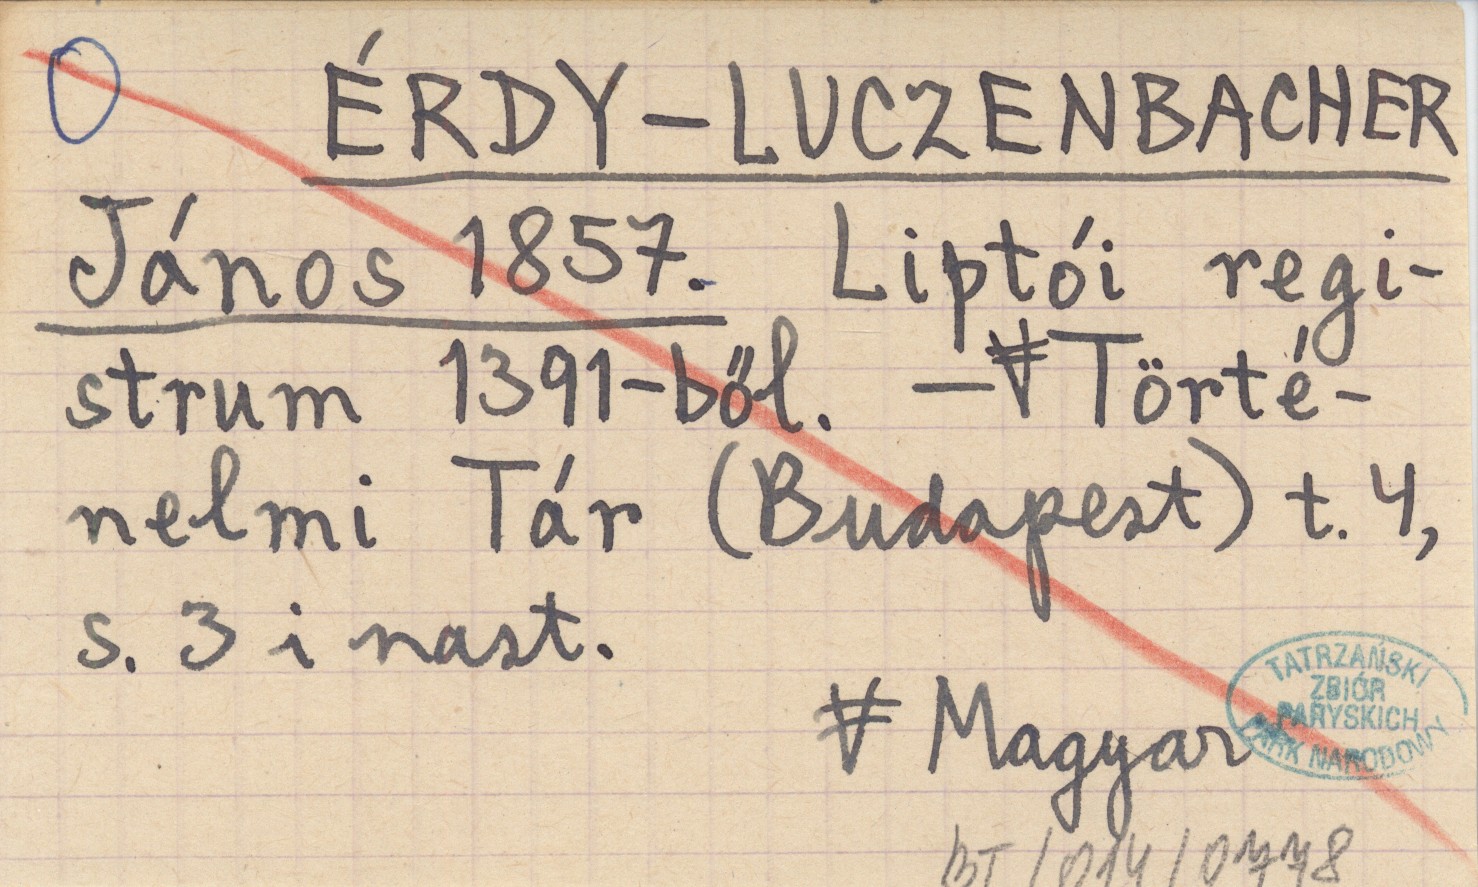 ÉRDY-LUCZENBACHER
János 1857. Liptói regi-
strum 1391-ből. — Törté-
nelmi Tár (Budapest) t. 4,
s. 3 i nast.
Magyar
TATRZAŃSKI
ZBIÓR
PARYSKICH
PARK NARODOWY
BT/014/0778